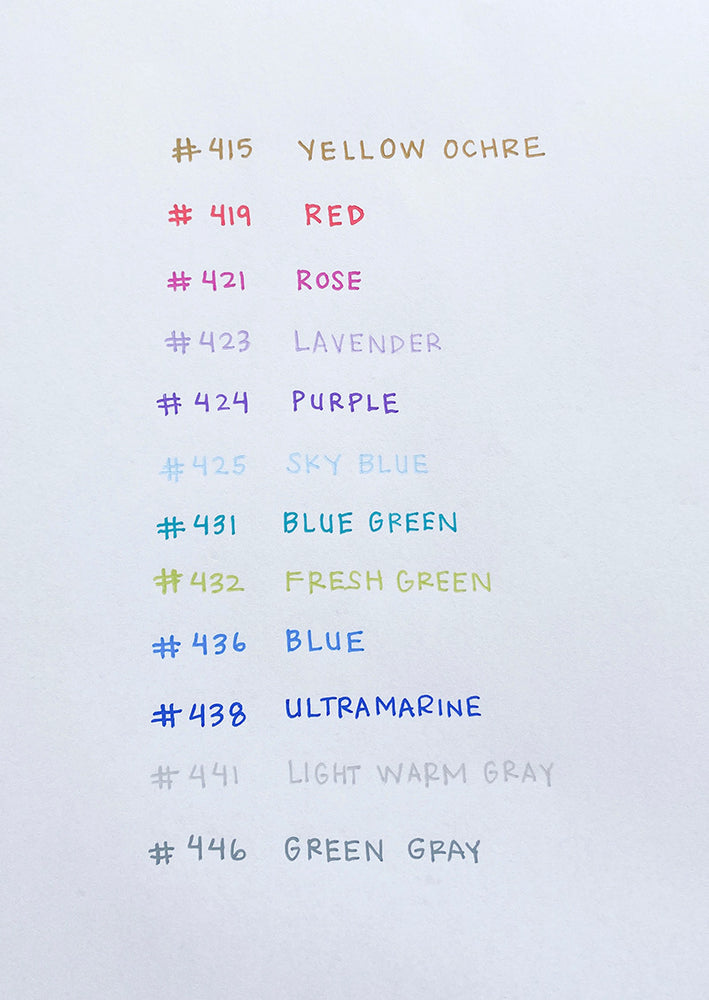 # 415 YELLOW OCHRE
# 419 RED
# 421 ROSE
# 423 LAVENDER
# 424 PURPLE
# 425 SKY BLUE
# 431 BLUE GREEN
# 432 FRESH GREEN
# 436 BLUE
# 438 ULTRAMARINE
# 441 LIGHT WARM GRAY
# 446 GREEN GRAY